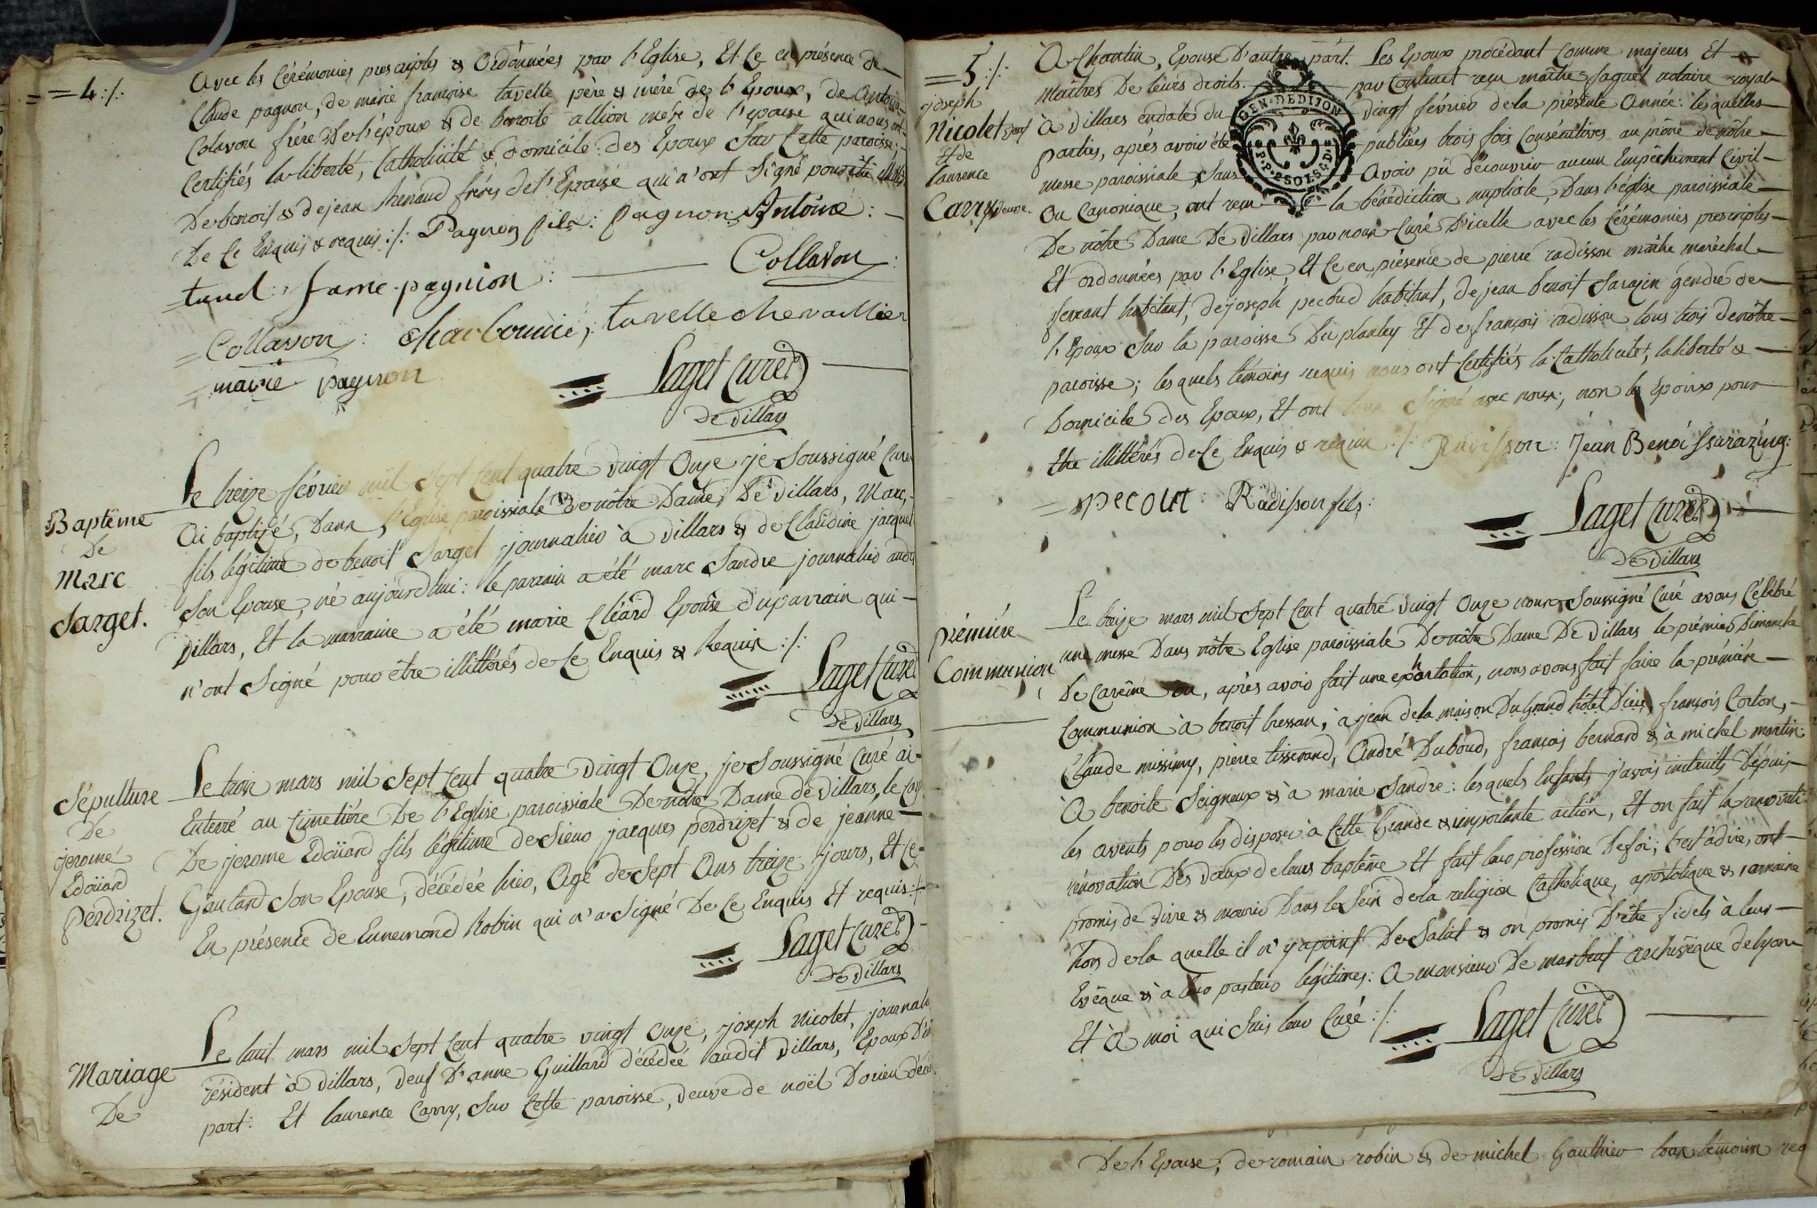 = = 4 ./.
avec les Cérémonies prescriptes & ordonnées par l'Eglise, Et Ce en présence de
Claude pagnon, de marie françoise tavelle père & mère de l'Epoux, de Antoine
Colavon frère de l'époux & de benoite allion mère de l'epouse qui nous ont
Certifiés la liberté, Catholicité & domicile des Epoux sur Cette paroisse;
De benoit & de jean frères de l'Epouse qui n'ont Signé pour être illit
De Ce Enquis & requis ./. Pagnon fils : pagnon Antoine :
tavel : fame pagnion : Collavon :
Collavon : Charbonnié, tavelle chevallier
marie pagnon
Laget Curé
De Villars
Baptême
De
Marc
Sarget.
Le treize février mil sept Cent quatre vingt Onze je soussigné Curé
Ai baptisé, Dans l'Eglise paroissiale De nôtre Dame De Villars, Marc,
fils légitime de benoit Sarget journalier à Villars & de Claudine jacquet
Son Epouse, né aujourdhui : le parrain a été marc Sandre journalier audit
Villars, Et la marraine a été marie Cléard Epouse du parrain qui
n'ont Signé pour être illittérés de Ce Enquis & Requis ./.
Laget Curé
De Villars
Sépulture
De
jerome
Edoüard
Perdrizet.
Le trois mars mil Sept Cent quatre vingt Onze, je Soussigné Curé ai
Enterré au Cimetière De l'Eglise paroissiale De nôtre Dame de Villars, le Corps
De jerome Edoüard fils légitime de Sieur jacques perdrizet & de jeanne
Goulard Son Epouse, décédée hier, Agé de Sept Ans treize jours, Et Ce
En présence de Ennemond Robin qui n'a Signé De Ce Enquis Et requis ./.
Laget Curé
De Villars
Mariage
De
Le huit mars mil Sept Cent quatre vingt Onze, joseph Nicolet, journalier
résident à Villars, veuf D'anne Guillard décédée audit Villars, Epoux D'une
part : Et laurence Carry, Sur Cette paroisse, veuve de noël Dorieu décédé
= 5 ./.
joseph
Nicolet veuf
Et de
laurence
Carry Veuve.
A Chantin, Epouse D'autre part. Les Epoux procédant Comme majeurs Et
maitres De leurs droits par Contract reçu maître Saguet notaire royal
à Villars endate du vingt février de la présente Année : les quelles
parties, après avoir été publiées trois fois Consécutives au prône de nôtre
messe paroissiale, Sans Avoir pû découvrir aucun Empêchement Civil
Ou Canonique, ont reçu la bénédiction nuptiale, Dans l'église paroissiale
De nôtre Dame De Villars par nous Curé D'icelle avec les Cérémonies prescriptes
Et ordonnées par l'Eglise, Et Ce en présence de pierre radisson maître maréchal
ferrant habitant, de joseph pecoud habitant, de jean benoit Sarazin gendre de
l'Epoux Sur la paroisse Du plantey Et de françois radisson tous trois de nôtre
paroisse; les quels témoins requis nous ont Certifiés la Catholicité, la liberté &
Domicile des Epoux, Et ont Signé avec nous, non les Epoux pour
être illittérés de Ce Enquis & requis ./. Radisson : Jean Benoi Ssarazing :
pecout : Radisson fils :
Laget Curé
De Villars
GEN. DE DIJON
P. P. 2 SOLS 8 D
Prémière
Communion
Le treize mars mil Sept Cent quatre vingt Onze nous Soussigné Curé avons Célébré
une messe Dans nôtre Eglise paroissiale De nôtre Dame De Villars le prémier Dimanche
De Carême où, après avoir fait une exhortation, nous avons fait faire la prémière
Communion à benoit bressan, à jean de la maison Du Grand hôtel Dieu, françois Corton,
Claude missimy, pierre tisserand, André Duboud, françois bernard & à michel martin
A benoite Seigneux & à marie Sandre : les quels Enfants j'avois instruits Dépuis
les avents pour les disposer à Cette Grande & importante action, Et on fait la
rénovation Des vœux de leurs baptême Et fait leur profession De foi; C'est à dire, ont
promis de vivre & mourir Dans le Sein de la religion Catholique, apostolique & romaine
hors de la quelle il n'y a point De Salut & on promis D'être fidels à leur
Evêque & à leur pasteur légitimes : A monsieur De marbeuf archevêque de lyon
Et à moi qui Suis leur Curé ./.
Laget Curé
De Villars
De l'Epouse, de romain robin & de michel Gauthier tous témoins req